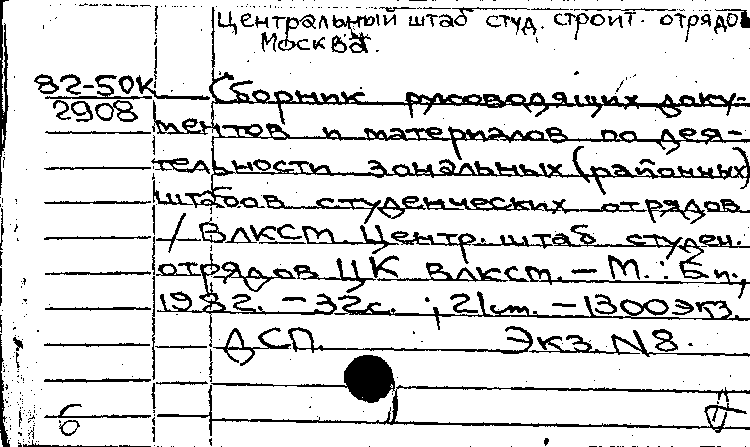 Центральный штаб студ. строит. отрядов
Москва.
82-50К
2908
Сборник руководящих доку-
ментов и материалов по дея-
тельности зональных (районных)
штабов студенческих отрядов
/ ВЛКСМ. Центр. штаб студен.
отрядов ЦК ВЛКСМ. – М. : Б.и.,
1982. – 32с. ; 21см. – 1300экз.
ДСП. Экз. N8.
б